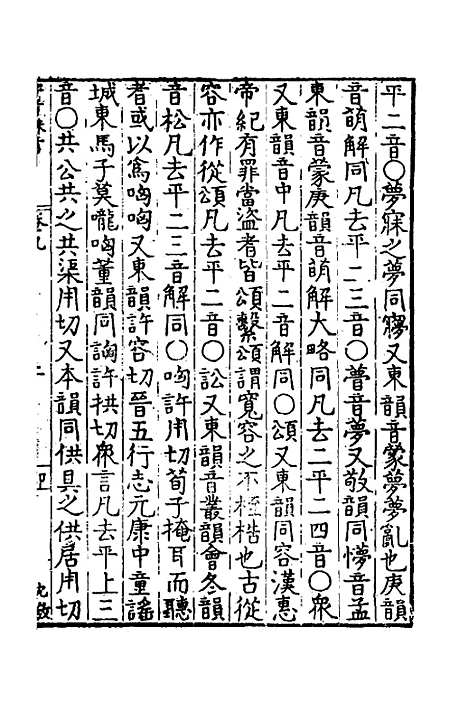 平二音〇夢寐之夢同㝱又東韻音蒙夢夢亂也庚韻
音萌解同凡去平二三音〇瞢音夢又敬韻同懜音孟
東韻音蒙庚韻音萌解大略同凡去二平二四音〇衆
又東韻音中凡去平二音解同〇頌又東韻同容漢惠
帝紀有罪當盜者皆頌繫頌謂寬容之不桎梏也古從
容亦作從頌凡去平二音〇訟又東韻音叢韻會冬韻
音松凡去平二三音解同〇哅許用切荀子掩耳而聽
者或以爲哅哅又東韻許容切晉五行志元康中童謠
城東馬子莫嚨哅董韻同詾許拱切衆言凡去平上三
音〇共公共之共渠用切又本韻同供具之供居用切
卷九